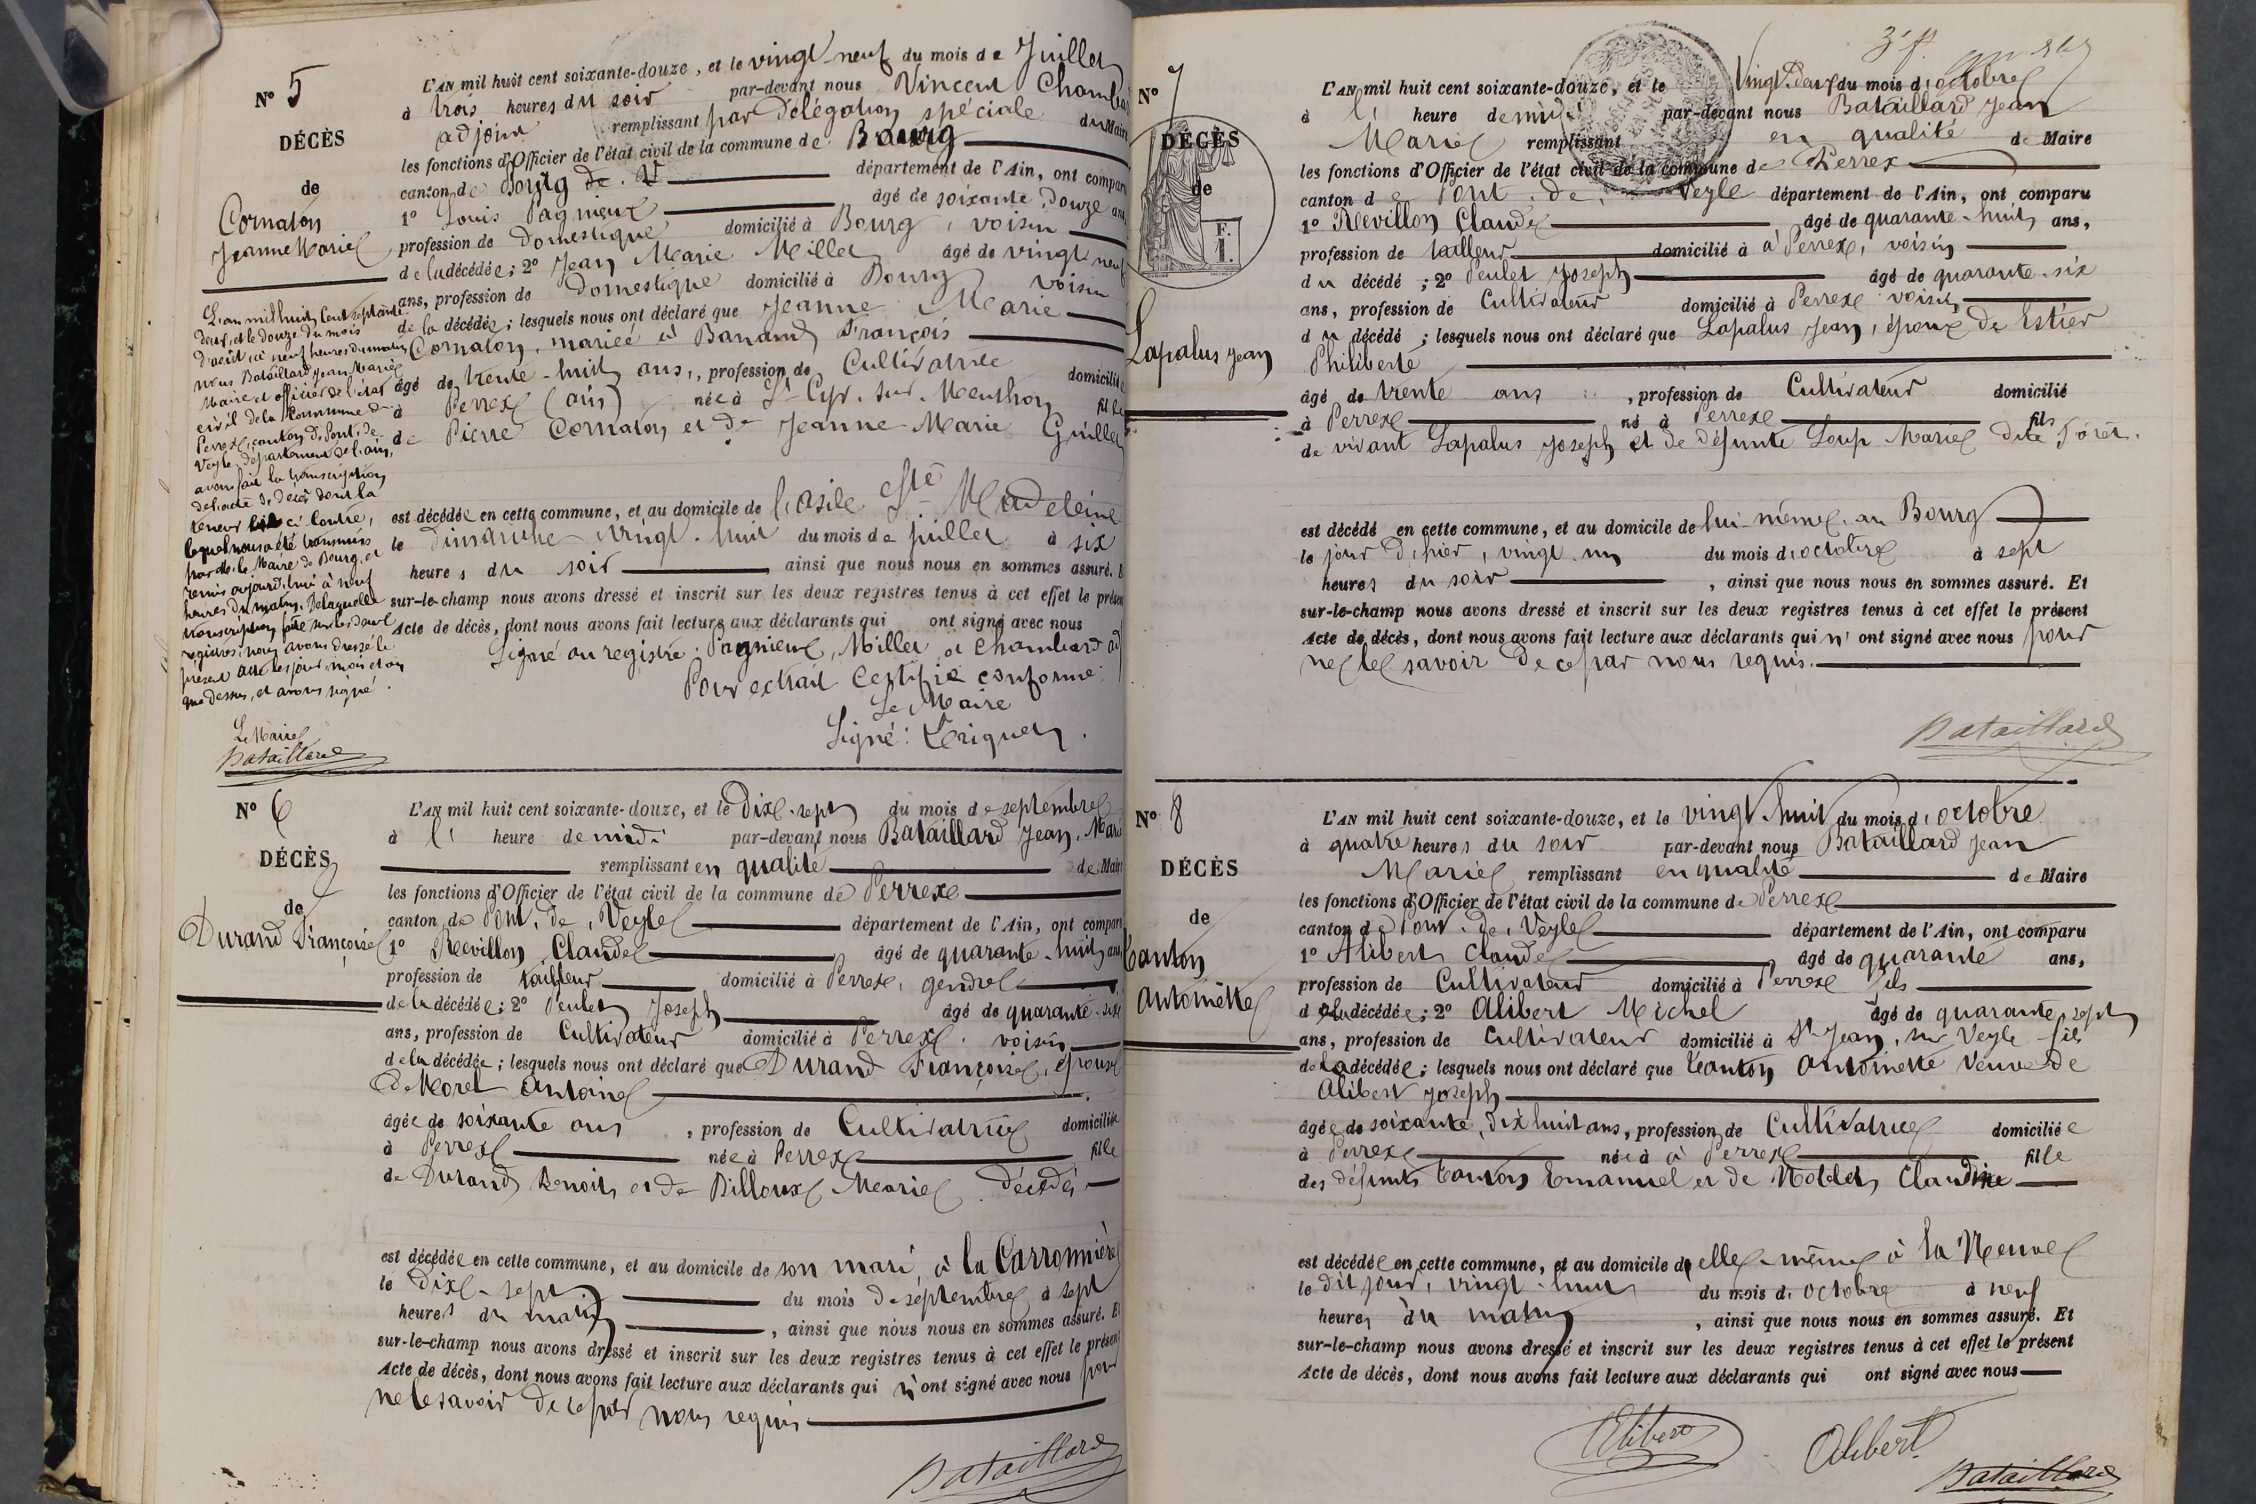 N° 5
DÉCÈS
de
Cornaton
Jeanne Marie
L'an mil huit cent septante
deux, et le douze du mois
d'août, à neuf heures du matin
nous Bataillard Jean Marie
Maire et officier de l'état
civil de la Commune de
Perrex, canton de Pont-de-
Veyle, département de l'ain,
avons fait la transcription
de l'acte de décès dont la
teneur est ci contre,
lequel nous a été transmis
par de le Maire de Bourg, et
remis aujourd'hui à neuf
heures du matin. De laquelle
transcription faite sur les deux
registres, nous avons dressé le
présent acte les jour, mois et an
que dessus, et avons signé.
Le Maire
Bataillard
L'AN mil huit cent soixante-douze, et le vingt-neuf du mois de Juillet
à trois heures du soir par-devant nous Vincent Chambard
adjoint remplissant par délégation spéciale du Maire
les fonctions d'Officier de l'état civil de la commune de Bourg
canton de Bourg département de l'Ain, ont comparu
1° Louis Pagnieux âgé de soixante, douze ans
profession de Domestique domicilié à Bourg, voisin
de la décédée; 2° Jean Marie Millet âgé de vingt neuf
ans, profession de Domestique domicilié à Bourg voisin
de la décédée; lesquels nous ont déclaré que Jeanne Marie
Cornaton, mariée à Banand François
âgé de trente-huit ans, profession de Cultivatrice domiciliée
à Perrex (ain) née à St Cyr-sur-Menthon fille
de Pierre Cornaton et de Jeanne Marie Guillet
est décédée en cette commune, et au domicile de l'asile Ste Madeleine
le dimanche vingt-huit du mois de juillet à six
heures du soir ainsi que nous nous en sommes assuré. Et
sur-le-champ nous avons dressé et inscrit sur les deux registres tenus à cet effet le présent
Acte de décès, dont nous avons fait lecture aux déclarants qui ont signé avec nous
Signé au registre: Pagnieux, Millet et Chambard ad
Pour extrait Certifié conforme:
Le Maire
Signé:
N° 6
DÉCÈS
de
Durand Françoise
L'AN mil huit cent soixante-douze, et le Dix-sept du mois de septembre
à l' heure de midi par-devant nous Bataillard Jean, Marie
remplissant en qualité de Maire
les fonctions d'Officier de l'état civil de la commune de Perrex
canton de Pont, de, Veyle département de l'Ain, ont comparu
1° Revillon Claude âgé de quarante-huit ans
profession de tailleur domicilié à Perrex, gendre
de la décédée; 2° Peulet Joseph âgé de quarante-six
ans, profession de Cultivateur domicilié à Perrex, voisin
de la décédée; lesquels nous ont déclaré que Durand Françoise, épouse
de Morel Antoine
âgée de soixante ans, profession de Cultivatrice domiciliée
à Perrex née à Perrex fille
de Durand Benoit et de Billoux Marie, décédés
est décédée en cette commune, et au domicile de son mari, à la Carronnière
le Dix-sept du mois de septembre à sept
heures du matin, ainsi que nous nous en sommes assuré. Et
sur-le-champ nous avons dressé et inscrit sur les deux registres tenus à cet effet le présent
Acte de décès, dont nous avons fait lecture aux déclarants qui n'ont signé avec nous pour
ne le savoir de ce par nous requis
Bataillard
N° 7
DÉCÈS
de
F.
1.
Lapalus Jean
L'AN mil huit cent soixante-douze, et le Vingt-deux du mois d'octobre
à l' heure de midi par-devant nous Bataillard Jean
Marie remplissant en qualité de Maire
les fonctions d'Officier de l'état civil de la commune de Perrex
canton de Pont, de, Veyle département de l'Ain, ont comparu
1° Revillon Claude âgé de quarante-huit ans,
profession de tailleur domicilié à à Perrex, voisin
du décédé; 2° Peulet Joseph âgé de quarante-six
ans, profession de Cultivateur domicilié à Perrex voisin
du décédé; lesquels nous ont déclaré que Lapalus Jean, époux de Estier
Philiberte
âgé de trente ans, profession de Cultivateur domicilié
à Perrex né à Perrex fils
de vivant Lapalus Joseph et de défunte Loup Marie dite Forêt.
est décédé en cette commune, et au domicile de lui-même, au Bourg
le jour d'hier, vingt-un du mois d'octobre à sept
heures du soir, ainsi que nous nous en sommes assuré. Et
sur-le-champ nous avons dressé et inscrit sur les deux registres tenus à cet effet le présent
Acte de décès, dont nous avons fait lecture aux déclarants qui n'ont signé avec nous pour
ne le savoir de ce par nous requis.
Bataillard
N° 8
DÉCÈS
de
Tanton
Antoinette
L'AN mil huit cent soixante-douze, et le vingt-huit du mois d'octobre
à quatre heures du soir par-devant nous Bataillard Jean
Marie remplissant en qualité de Maire
les fonctions d'Officier de l'état civil de la commune de Perrex
canton de Pont-de-Veyle département de l'Ain, ont comparu
1° Alibert Claude âgé de quarante ans,
profession de Cultivateur domicilié à Perrex fils
de la décédée; 2° Alibert Michel âgé de quarante-sept
ans, profession de Cultivateur domicilié à St Jean, sur Veyle fils
de la décédée; lesquels nous ont déclaré que Tanton Antoinette veuve de
Alibert Joseph
âgée de soixante, dix huit ans, profession de Cultivatrice domiciliée
à Perrex née à à Perrex fille
des défunts Tanton Emanuel et de Claudine
est décédée en cette commune, et au domicile de elle-même à la Neuve
le dit jour, vingt-huit du mois d'octobre à neuf
heures du matin, ainsi que nous nous en sommes assuré. Et
sur-le-champ nous avons dressé et inscrit sur les deux registres tenus à cet effet le présent
Acte de décès, dont nous avons fait lecture aux déclarants qui ont signé avec nous
Alibert Alibert
Bataillard